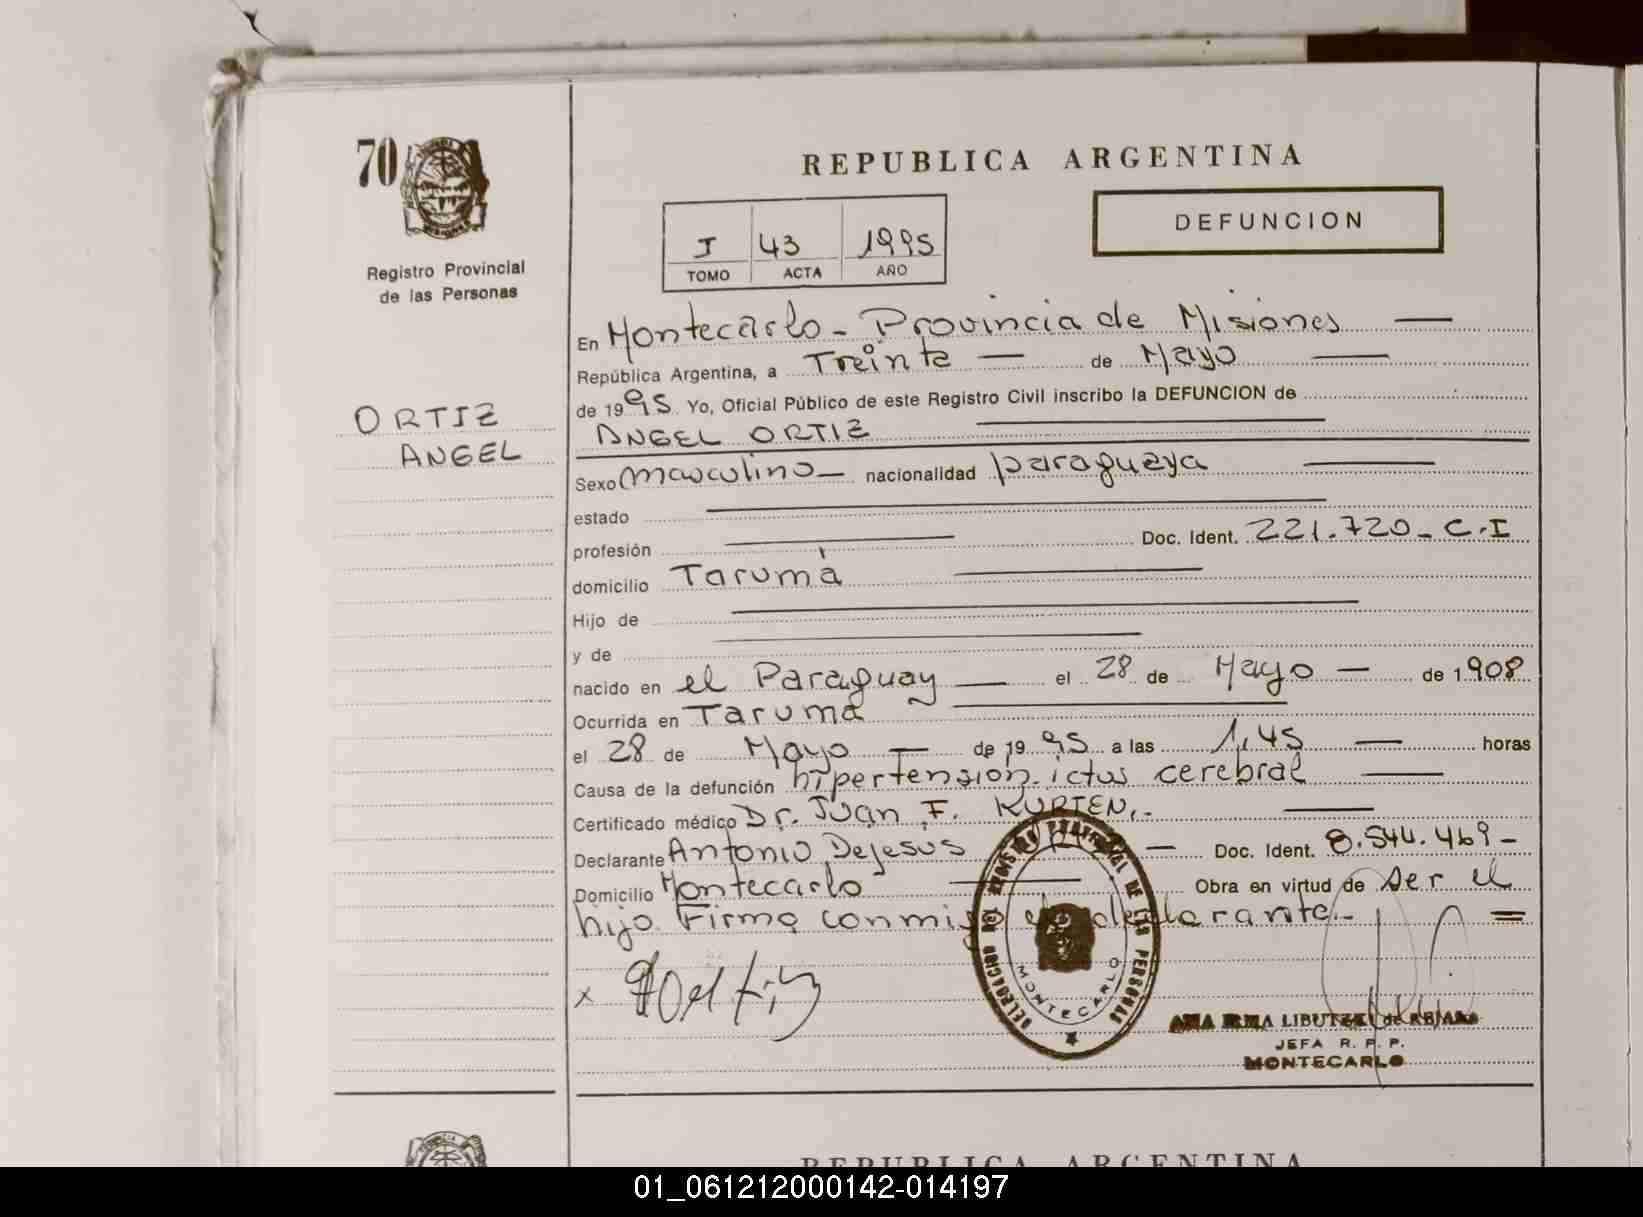 70
REPUBLICA ARGENTINA
DEFUNCION
I 43 1995
TOMO ACTA AÑO
Registro Provincial
de las Personas
ORTIZ
ANGEL
En Montecarlo - Provincia de Misiones
República Argentina, a Treinta de Mayo
de 1995 Yo, Oficial Público de este Registro Civil inscribo la DEFUNCION de
ANGEL ORTIZ
Sexo masculino nacionalidad paraguaya
estado
profesión Doc. Ident. 221.720 - C.I
domicilio Taruma
Hijo de
y de
nacido en el Paraguay el 28 de Mayo de 1908
Ocurrida en Taruma
el 28 de Mayo de 1995 a las 1,45 horas
Causa de la defunción hipertension. ictus cerebral
Certificado médico Dr. Juan F. KURTEN.-
Declarante Antonio Dejesus Doc. Ident. 8.544.469 -
Domicilio Montecarlo Obra en virtud de ser el
hijo. Firma conmigo el declarante.-
x
DELEGACION DEL REGISTRO PROVINCIAL DE LAS PERSONAS
MONTECARLO
ANA IRMA
JEFA R. P. P.
MONTECARLO
REPUBLICA ARGENTINA
01_061212000142-014197